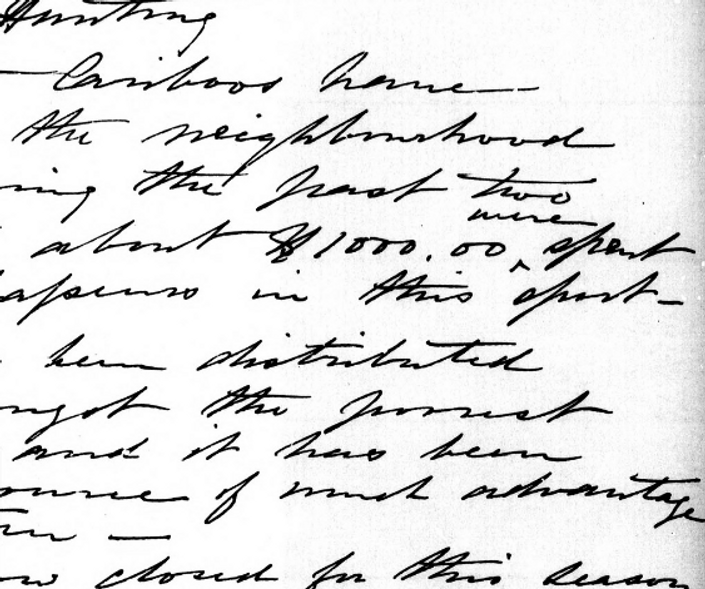 Hunting
Cariboos have
the neighbourhood
ing the past two
were
about $1000.00 ‸ spent
apenses in this sport-
been distributed
ngst the poorest
and it has been
ource of much advantage
—
ow closed for this season